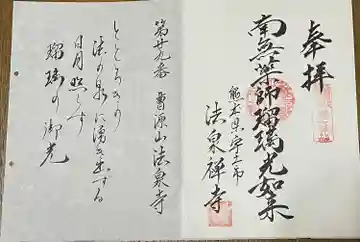 奉拝
南無薬師瑠璃光如来
熊本県宇土市
法泉禅寺
第廿九番 曹源山 法泉寺
とことはに
法の泉に湧き出する
日月照らす
瑠璃の御光